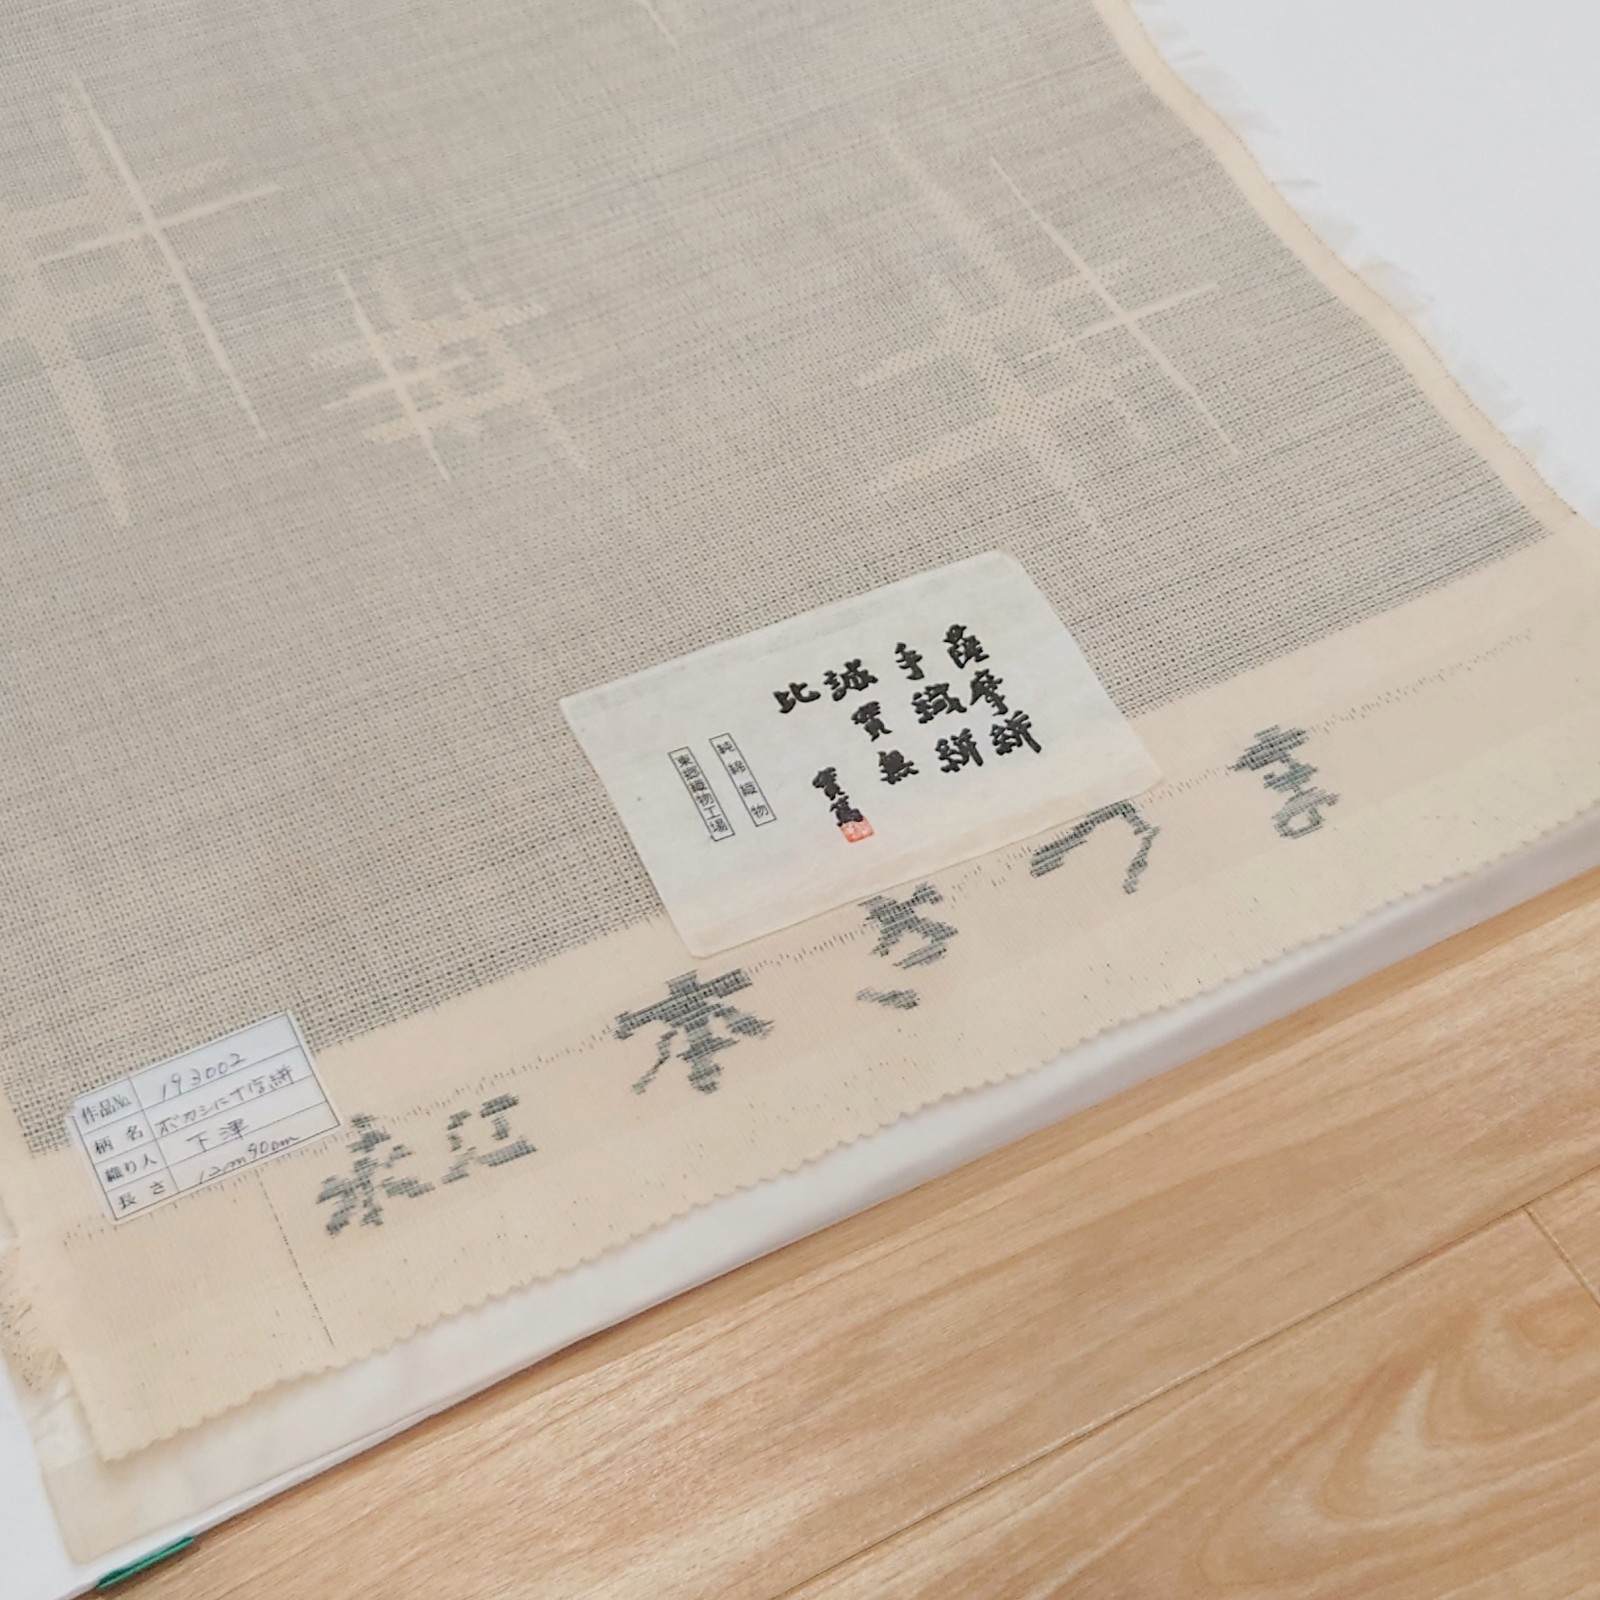 薩摩絣
手織絣
誠實無比
實篤
純綿織物
東郷織物工場
作品No. 193002
柄名 ボカシに十字絣
織り人 下津
長さ 12m90cm